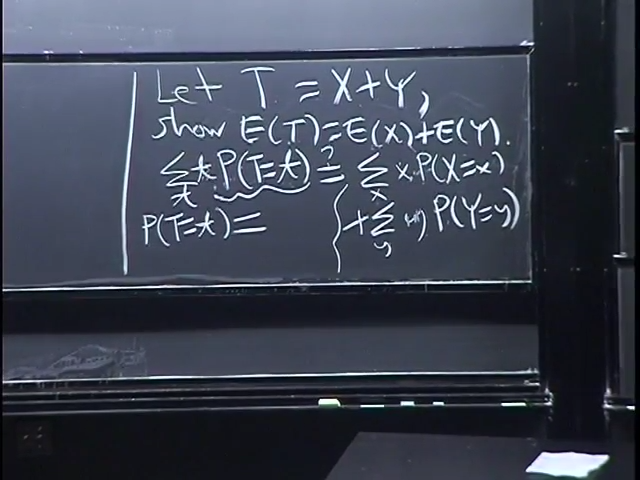 Let T = X+Y,
show E(T)=E(X)+E(Y).
∑_t t P(T=t) ?= ∑_x x P(X=x)
P(T=t)= + ∑_y y P(Y=y)